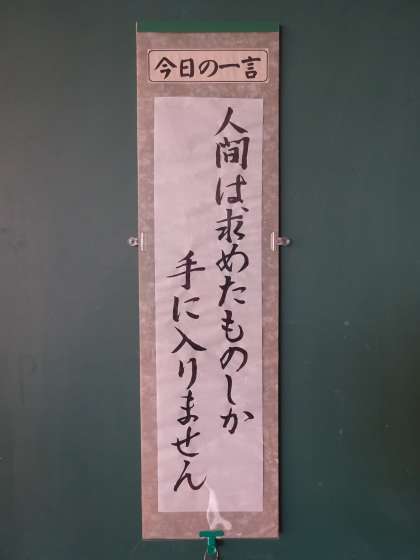 今日の一言
人間は、求めたものしか
手に入りません